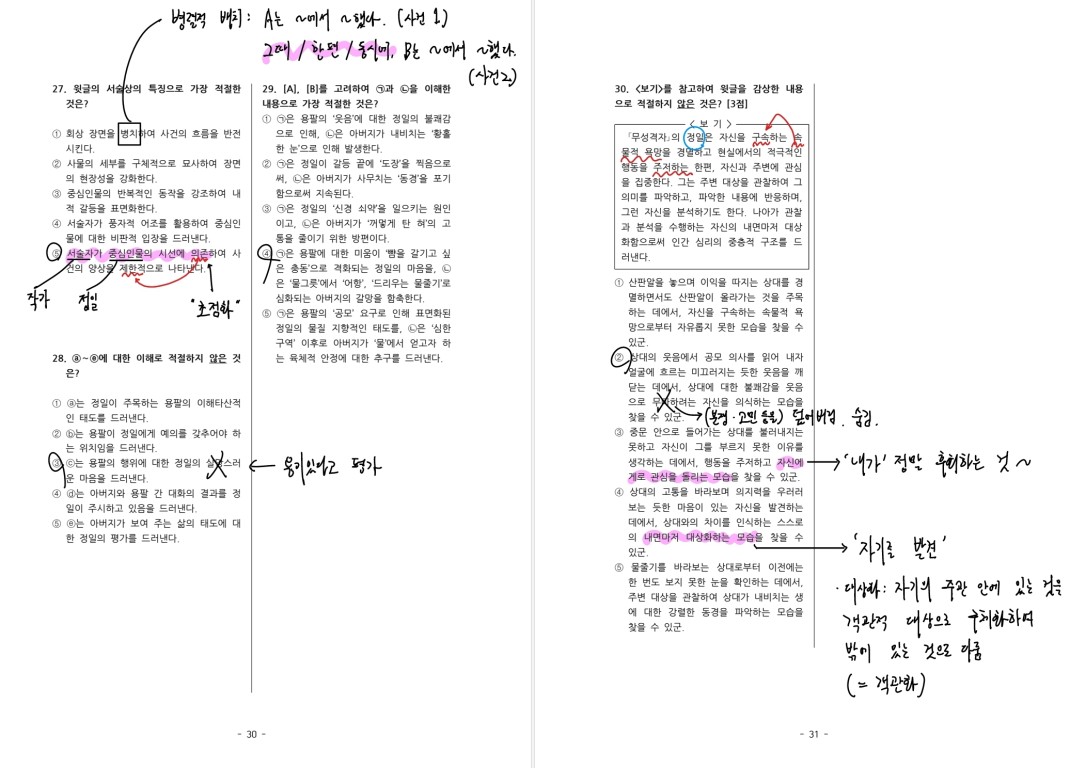 병렬적 배치: A는 ~에서 ~했다. (사건 1)
그때 / 한편 / 동시에, B는 ~에서 ~했다.
(사건 2)
27. 윗글의 서술상의 특징으로 가장 적절한
것은?
① 회상 장면을 병치하여 사건의 흐름을 반전
시킨다.
② 사물의 세부를 구체적으로 묘사하여 장면
의 현장성을 강화한다.
③ 중심인물의 반복적인 동작을 강조하여 내
적 갈등을 표면화한다.
④ 서술자가 풍자적 어조를 활용하여 중심인
물에 대한 비판적 입장을 드러낸다.
⑤ 서술자가 중심인물의 시선에 의존하여 사
건의 양상을 제한적으로 나타낸다.
작가
정일
"초점화"
28. ⓐ~ⓔ에 대한 이해로 적절하지 않은 것
은?
① ⓐ는 정일이 주목하는 용팔의 이해타산적
인 태도를 드러낸다.
② ⓑ는 용팔이 정일에게 예의를 갖추어야 하
는 위치임을 드러낸다.
③ ⓒ는 용팔의 행위에 대한 정일의 실망스러
운 마음을 드러낸다.
용기있다고 평가
④ ⓓ는 아버지와 용팔 간 대화의 결과를 정
일이 주시하고 있음을 드러낸다.
⑤ ⓔ는 아버지가 보여 주는 삶의 태도에 대
한 정일의 평가를 드러낸다.
29. [A], [B]를 고려하여 ㉠과 ㉡을 이해한
내용으로 가장 적절한 것은?
① ㉠은 용팔의 '웃음'에 대한 정일의 불쾌감
으로 인해, ㉡은 아버지가 내비치는 '황홀
한 눈'으로 인해 발생한다.
② ㉠은 정일이 갈등 끝에 '도장'을 찍음으로
써, ㉡은 아버지가 사무치는 '동경'을 포기
함으로써 지속된다.
③ ㉠은 정일의 '신경 쇠약'을 일으키는 원인
이고, ㉡은 아버지가 '꺼멓게 탄 혀'의 고
통을 줄이기 위한 방편이다.
④ ㉠은 용팔에 대한 미움이 '뺨을 갈기고 싶
은 충동'으로 격화되는 정일의 마음을, ㉡
은 '물그릇'에서 '어항', '드리우는 물줄기'로
심화되는 아버지의 갈망을 함축한다.
⑤ ㉠은 용팔의 '공모' 요구로 인해 표면화된
정일의 물질 지향적인 태도를, ㉡은 '심한
구역' 이후로 아버지가 '물'에서 얻고자 하
는 육체적 안정에 대한 추구를 드러낸다.
- 30 -
30. <보기>를 참고하여 윗글을 감상한 내용
으로 적절하지 않은 것은? [3점]
< 보 기 >
「무성격자」의 정일은 자신을 구속하는 속
물적 욕망을 경멸하고 현실에서의 적극적인
행동을 주저하는 한편, 자신과 주변에 관심
을 집중한다. 그는 주변 대상을 관찰하여 그
의미를 파악하고, 파악한 내용에 반응하며,
그런 자신을 분석하기도 한다. 나아가 관찰
과 분석을 수행하는 자신의 내면마저 대상
화함으로써 인간 심리의 중층적 구조를 드
러낸다.
① 산판알을 놓으며 이익을 따지는 상대를 경
멸하면서도 산판알이 올라가는 것을 주목
하는 데에서, 자신을 구속하는 속물적 욕
망으로부터 자유롭지 못한 모습을 찾을 수
있군.
② 상대의 웃음에서 공모 의사를 읽어 내자
얼굴에 흐르는 미끄러지는 듯한 웃음을 깨
닫는 데에서, 상대에 대한 불쾌감을 웃음
으로 무마하려는 자신을 의식하는 모습을
찾을 수 있군.
(불평·고민 등을) 덮어버림. 숨김.
③ 중문 안으로 들어가는 상대를 불러내지는
못하고 자신이 그를 부르지 못한 이유를
생각하는 데에서, 행동을 주저하고 자신에
게로 관심을 돌리는 모습을 찾을 수 있군.
'내가' 정말 후회하는 것 ~
④ 상대의 고통을 바라보며 의지력을 우러러
보는 듯한 마음이 있는 자신을 발견하는
데에서, 상대와의 차이를 인식하는 스스로
의 내면마저 대상화하는 모습을 찾을 수
있군.
'자기를 발견'
· 대상화: 자기의 주관 안에 있는 것을
객관적 대상으로 구체화하여
밖에 있는 것으로 다룸
(= 객관화)
⑤ 물줄기를 바라보는 상대로부터 이전에는
한 번도 보지 못한 눈을 확인하는 데에서,
주변 대상을 관찰하여 상대가 내비치는 생
에 대한 강렬한 동경을 파악하는 모습을
찾을 수 있군.
- 31 -